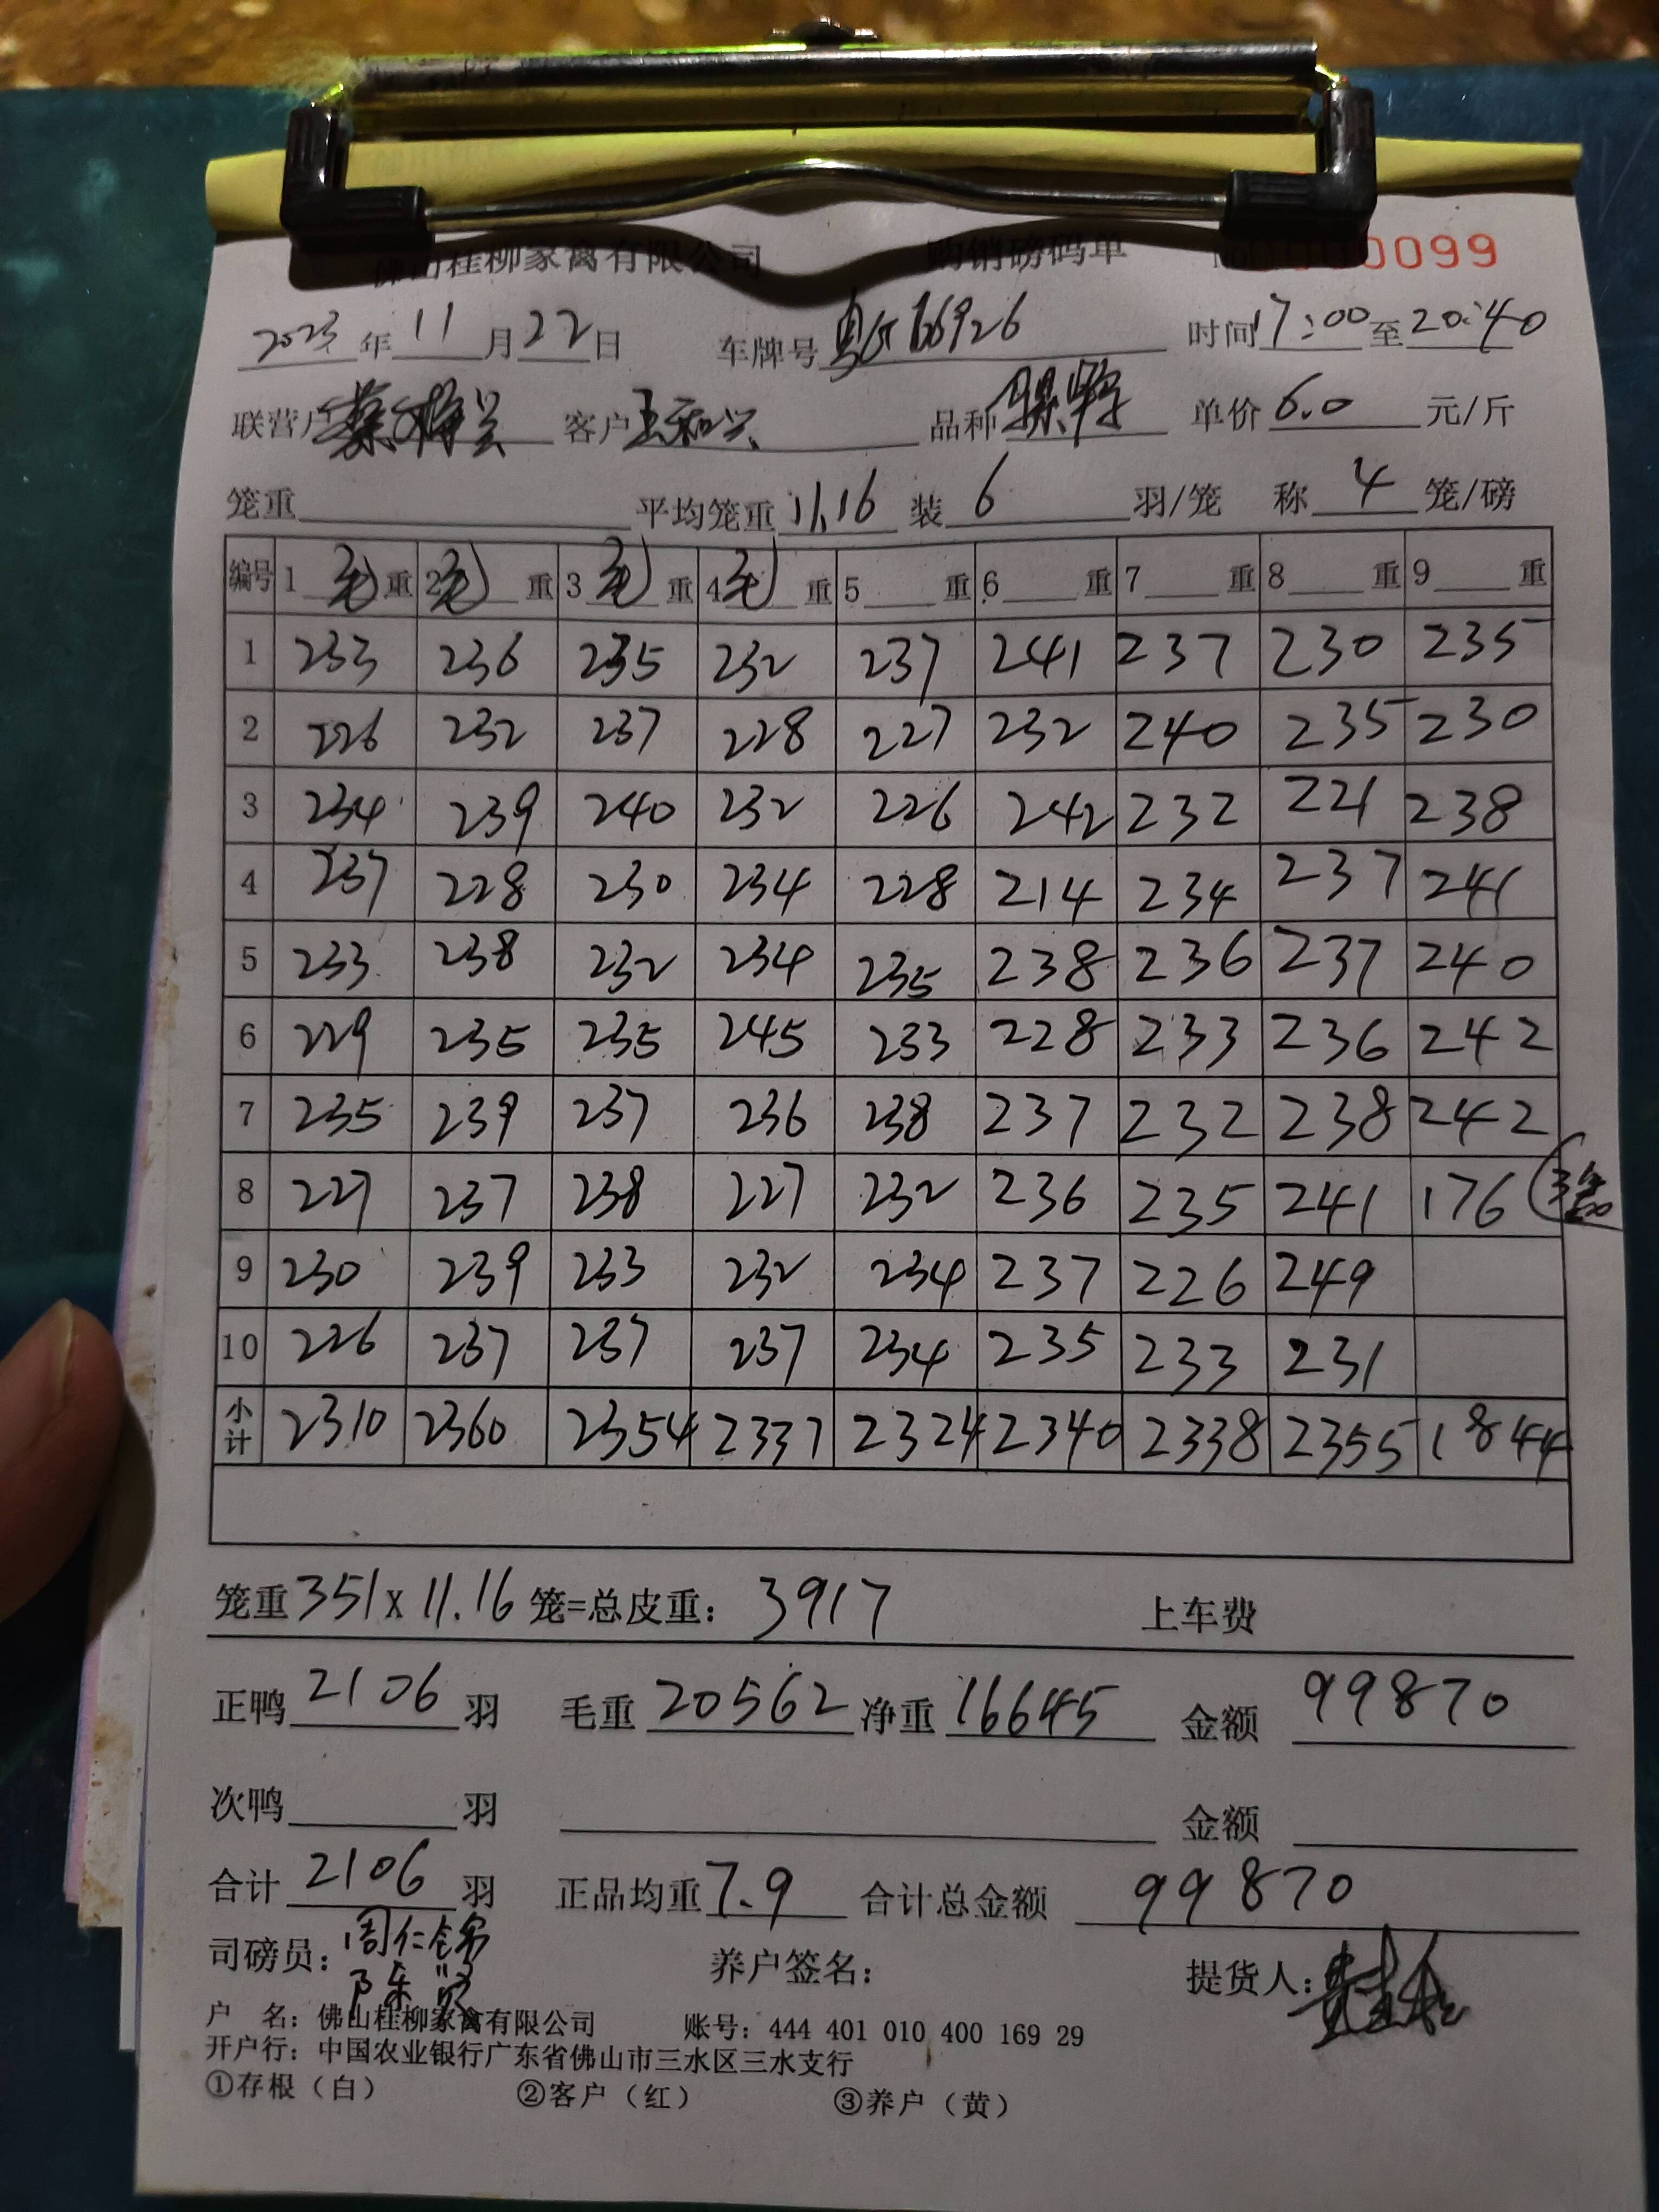 佛山桂柳家禽有限公司 购销磅码单 No0000099
2023年11月22日 车牌号 时间17:00至20:40
联营户 客户王和兴 品种 单价6.0元/斤
笼重 平均笼重11.16 装6羽/笼 称4笼/磅
编号 1毛重 2毛重 3毛重 4毛重 5重 6重 7重 8重 9重
1 233 236 235 232 237 241 237 230 235
2 226 232 237 228 227 232 240 235 230
3 234 239 240 232 226 242 232 221 238
4 237 228 230 234 228 214 234 237 241
5 233 238 232 234 235 238 236 237 240
6 229 235 235 245 233 228 233 236 242
7 235 239 237 236 238 237 232 238 242
8 227 237 238 227 232 236 235 241 176
9 230 239 233 232 234 237 226 249
10 226 237 237 237 234 235 233 231
小计 2310 2360 2354 2337 2324 2340 2338 2355 1844
笼重351x11.16笼=总皮重：3917 上车费
正鸭2106羽 毛重20562 净重16645 金额99870
次鸭 羽 金额
合计2106羽 正品均重7.9 合计总金额99870
司磅员：周仁锦 养户签名： 提货人：
户 名：佛山桂柳家禽有限公司 账号：444 401 010 400 169 29
开户行：中国农业银行广东省佛山市三水区三水支行
①存根（白） ②客户（红） ③养户（黄）